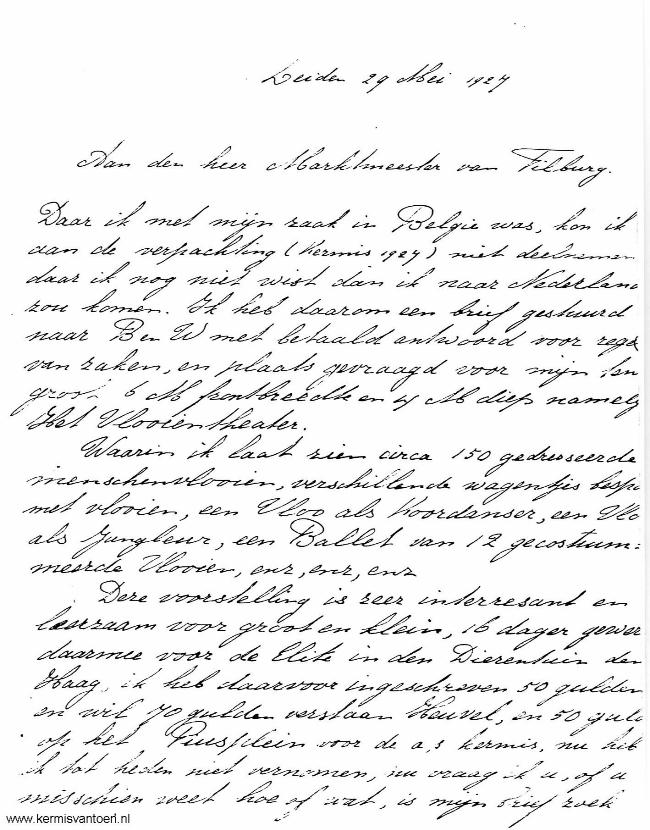 Leiden 29 Mei 1927
Aan den heer Marktmeester van Tilburg.
Daar ik met mijn zaak in Belgie was, kon ik
aan de verpachting (Kermis 1927) niet deelnemen
daar ik nog niet wist dan ik naar Nederland
zou komen. Ik heb daarom een brief gestuurd
naar B en W met betaald antwoord voor rege
van zaken, en plaats gevraagd voor mijn
groot 6 M frontbreedte en 4 M diep namely
Het Vlooientheater.
Waarin ik laat zien circa 150 gedresseerde
menschenvlooien, verschillende wagentjes besp
met vlooien, een Vloo als Koordanser, een Vlo
als Jungleur, een Ballet van 12 gecostium:
meerde Vlooien, enz, enz, enz
Deze voorstelling is zeer interresant en
leerzaam voor groot en klein, 16 dager gewer
daarmee voor de Elite in den Dierentuin den
Haag, ik heb daarvoor ingeschreven 50 gulden
en wil 70 gulden verstaan Heuvel, en 50 guld
op het Piusplein voor de a,s kermis, nu heb
ik tot heden niet vernomen, nu vraag ik u, of u
misschien weet hoe of wat, is mijn brief zoek
www.kermisvantoen.nl